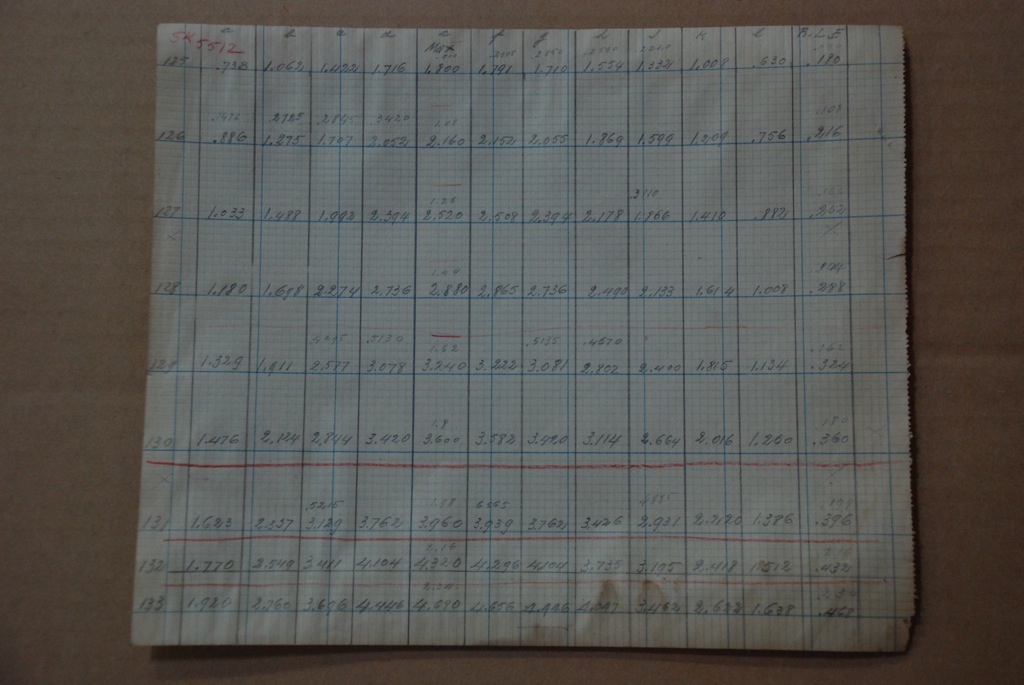 SK 5512
a b c d e f g h j k l R.L.E
Max
125 .738 1.062 1.422 1.716 1.800 1.791 1.710 1.554 1.332 1.008 .630 .180
.1476 .2725 .2845 .3420 1.08 .108
126 .886 1.275 1.707 2.052 2.160 2.152 2.055 1.869 1.599 1.209 .756 .216
1.26 .3910
127 1.033 1.488 1.992 2.394 2.520 2.508 2.394 2.178 1.866 1.410 .882 .252
1.44 .144
128 1.180 1.698 2.274 2.736 2.880 2.865 2.736 2.490 2.133 1.614 1.008 .288
.4295 .5130 1.62 .5135 .4670 .162
129 1.329 1.911 2.577 3.078 3.240 3.222 3.081 2.802 2.400 1.815 1.134 .324
1.8 .180
130 1.476 2.124 2.844 3.420 3.600 3.582 3.420 3.114 2.664 2.016 1.260 .360
.5215 1.98 .6565 .198
131 1.623 2.337 3.129 3.762 3.960 3.939 3.762 3.426 2.931 2.220 1.386 .396
2.16
132 1.770 2.549 3.411 4.104 4.320 4.296 4.104 3.735 3.195 2.418 1.512 .432
2.34 .234
133 1.920 2.760 3.696 4.446 4.680 4.656 4.446 4.047 3.462 2.622 1.638 .468